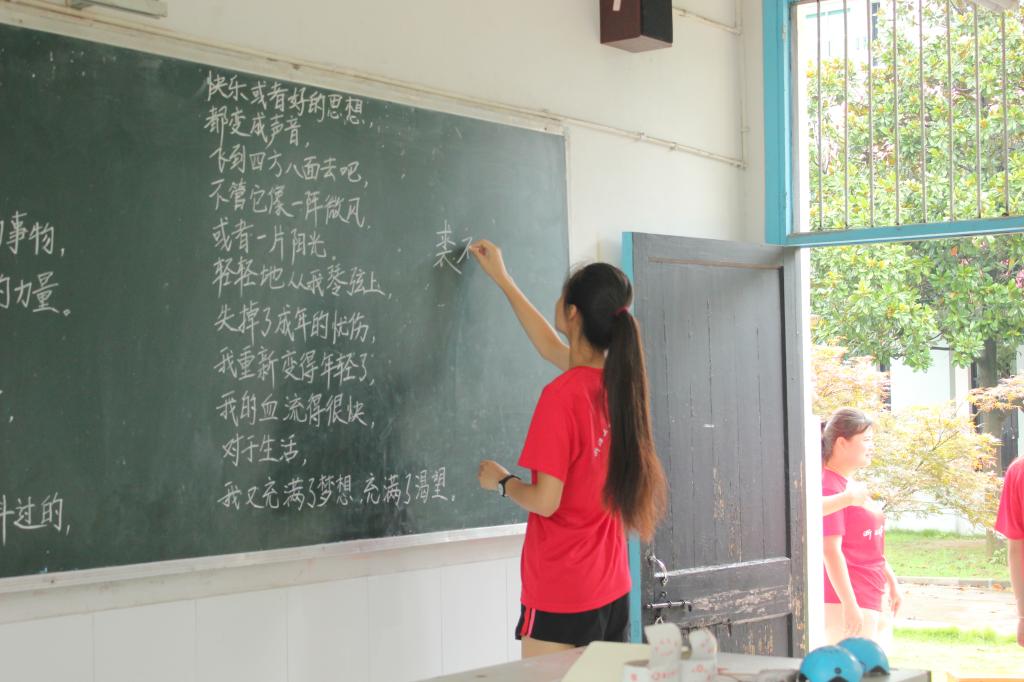 事物,
的力量。
斗过的,
快乐或者好的思想,
都变成声音,
飞到四方八面去吧,
不管它像一阵微风,
或者一片阳光,
轻轻地从我琴弦上,
失掉了成年的忧伤,
我重新变得年轻了,
我的血流得很快,
对于生活,
我又充满了梦想,充满了渴望。
表